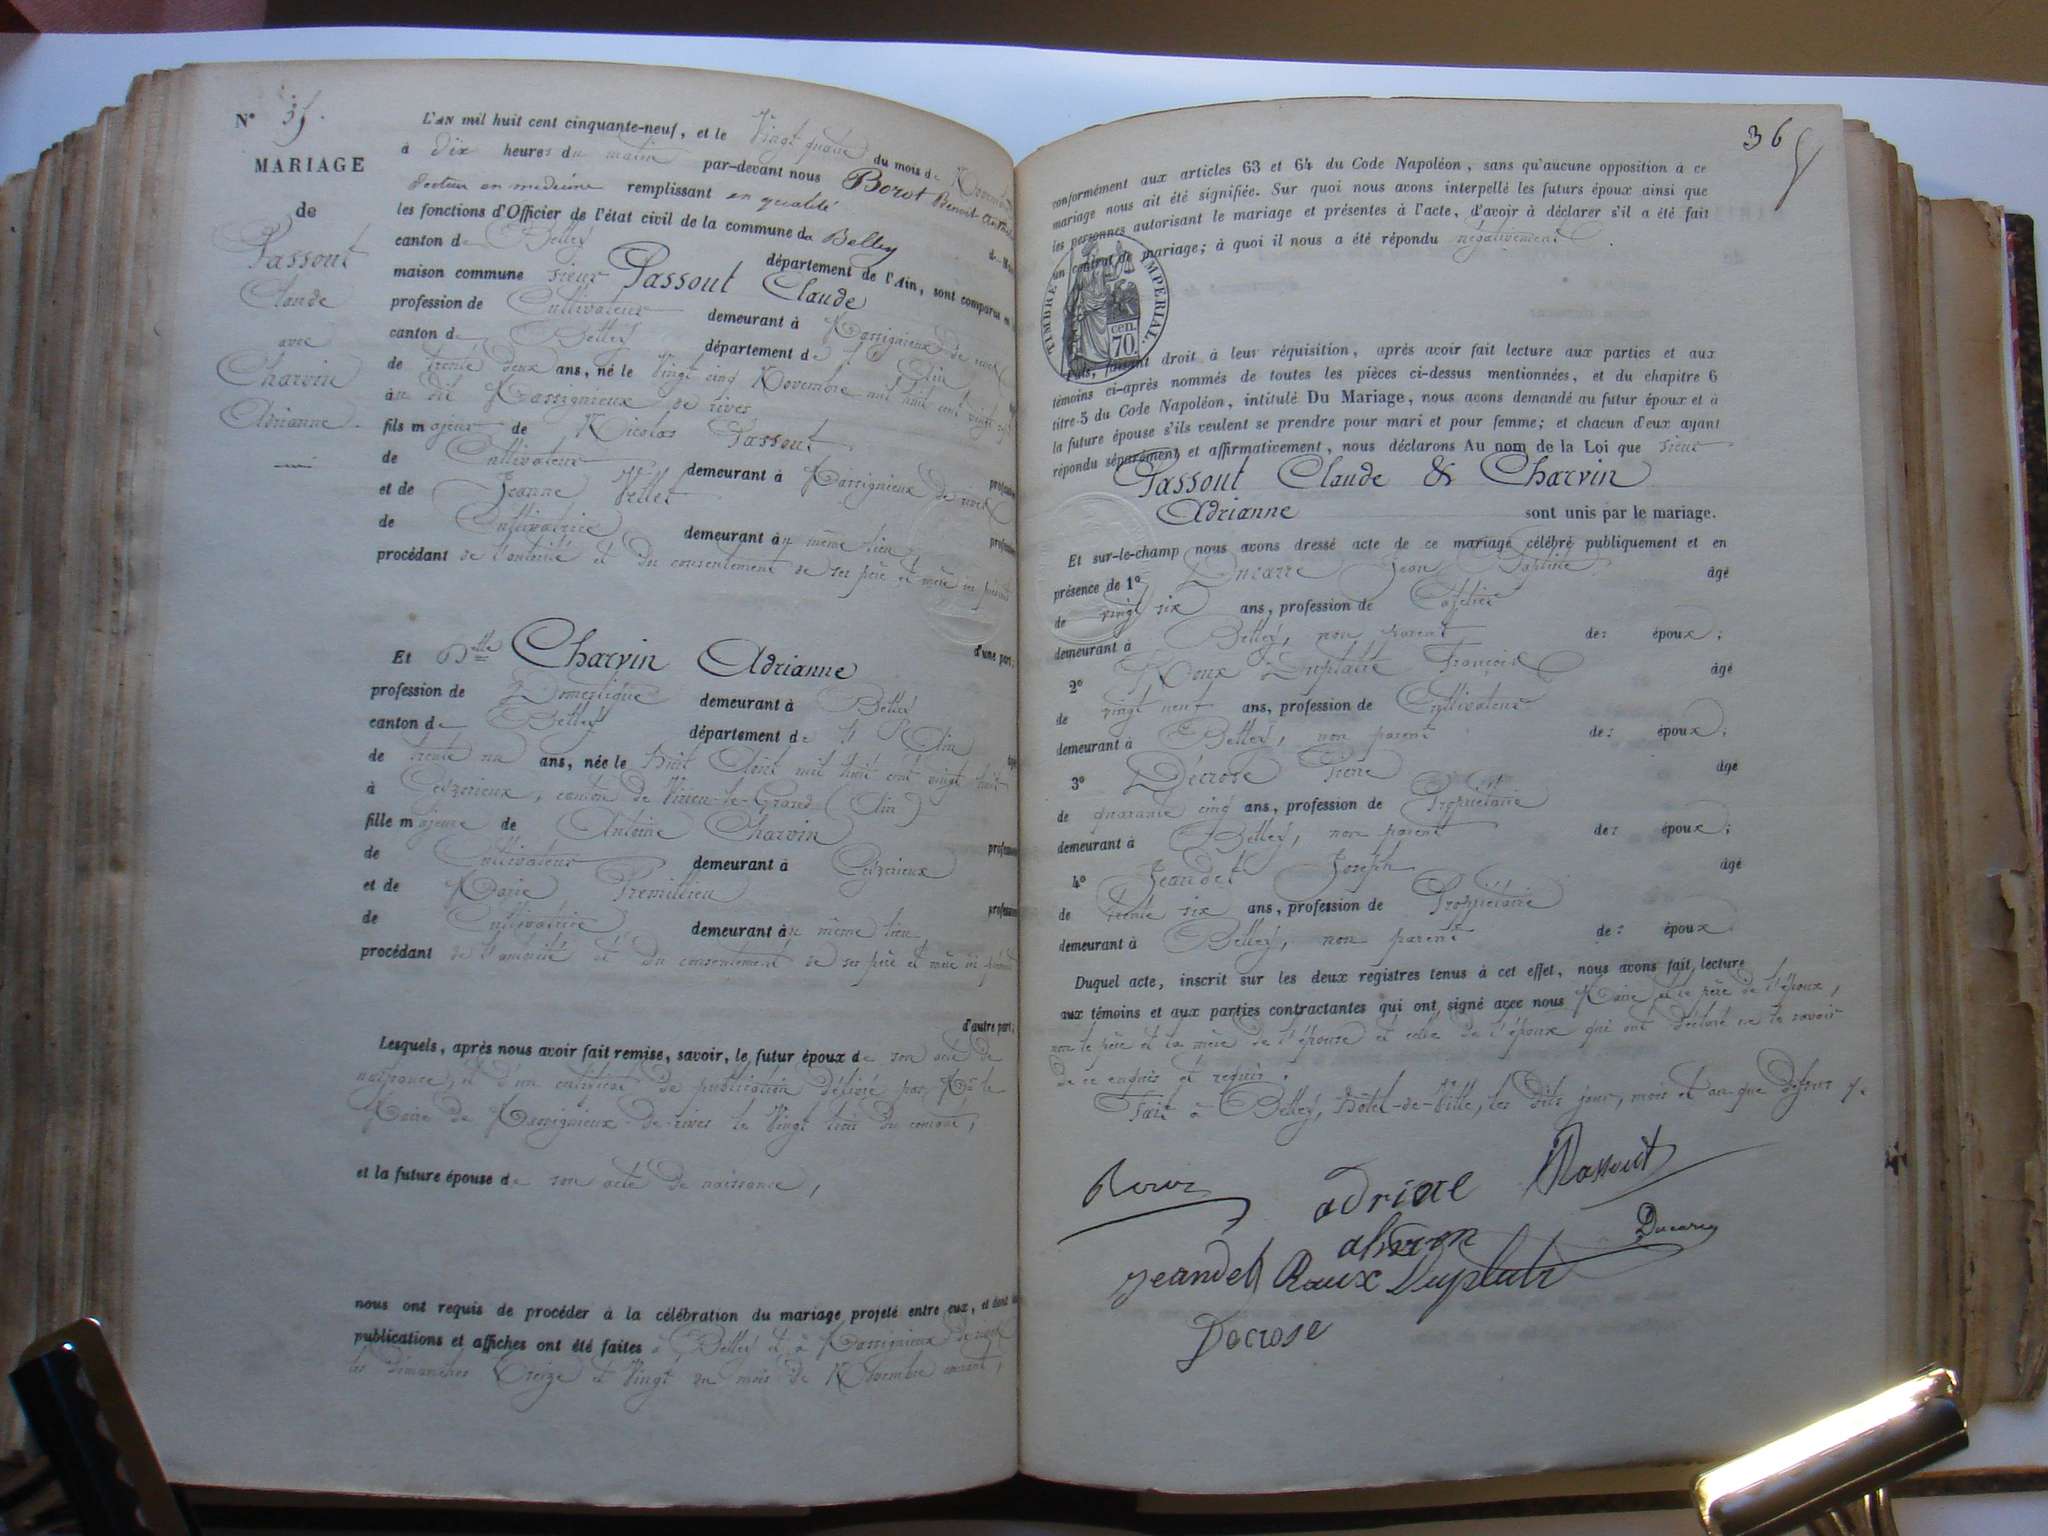 N° 35.
MARIAGE
de
Passout
Claude
avec
Charvin
Adrianne.
L'AN mil huit cent cinquante-neuf, et le Vingt quatre du mois de Novembre
à dix heures du matin par-devant nous Borot Benoit
docteur en medecine remplissant en qualité de Maire
les fonctions d'Officier de l'état civil de la commune de Belley
canton de Belley département de l'Ain, sont comparus en
maison commune sieur Passout Claude
profession de Cultivateur demeurant à Massignieux de rives
canton de Belley département de l'Ain
de trente deux ans, né le Vingt cinq Novembre mil huit cent vingt sept
au dit Massignieux de rives
fils majeur de Nicolas Passout
de Cultivateur demeurant à Massignieux de rives
et de Jeanne Vellet
de Cultivatrice demeurant au même lieu
procédant de l'autorité et du consentement de ses père et mère ici présents
d'une part;
Et Dlle Charvin Adrianne
profession de Domestique demeurant à Belley
canton de Belley département de l'Ain
de trente un ans, née le huit Août mil huit cent vingt huit
à Ceyzerieux, canton de Virieu-le-Grand (Ain)
fille majeure de Antoine Charvin
de Cultivateur demeurant à Ceyzerieux
et de Marie Premillieu
de Cultivatrice demeurant au même lieu
procédant de l'autorité et du consentement de ses père et mère ici présents
d'autre part;
Lesquels, après nous avoir fait remise, savoir, le futur époux de son acte de
naissance, et d'un certificat de publication délivré par Mr le
Maire de Massignieux-de-rives le Vingt trois du courant,
et la future épouse de son acte de naissance,
nous ont requis de procéder à la célébration du mariage projeté entre eux, et dont les
publications et affiches ont été faites à Belley et à Massignieux de rives
les dimanches treize et Vingt du mois de Novembre courant,
36
conformément aux articles 63 et 64 du Code Napoléon, sans qu'aucune opposition à ce
mariage nous ait été signifiée. Sur quoi nous avons interpellé les futurs époux ainsi que
les personnes autorisant le mariage et présentes à l'acte, d'avoir à déclarer s'il a été fait
un contrat de mariage; à quoi il nous a été répondu négativement
TIMBRE IMPERIAL.
70 cen.
Puis, faisant droit à leur réquisition, après avoir fait lecture aux parties et aux
témoins ci-après nommés de toutes les pièces ci-dessus mentionnées, et du chapitre 6
titre 5 du Code Napoléon, intitulé Du Mariage, nous avons demandé au futur époux et à
la future épouse s'ils veulent se prendre pour mari et pour femme; et chacun d'eux ayant
répondu séparément et affirmativement, nous déclarons Au nom de la Loi que sieur
Passout Claude & Charvin
Adrianne sont unis par le mariage.
Et sur-le-champ nous avons dressé acte de ce mariage célébré publiquement et en
présence de 1° Ducarre Jean Baptiste âgé
de vingt six ans, profession de
demeurant à Belley, non parent de: époux;
2° Roux Duplatre François âgé
de vingt neuf ans, profession de Cultivateur
demeurant à Belley, non parent de: époux;
3° Décrose Pierre âgé
de quarante cinq ans, profession de Propriétaire
demeurant à Belley, non parent de: époux;
4° Jeandet Joseph âgé
de trente six ans, profession de Propriétaire
demeurant à Belley, non parent de: époux
Duquel acte, inscrit sur les deux registres tenus à cet effet, nous avons fait lecture
aux témoins et aux parties contractantes qui ont signé avec nous Maire et le père de l'époux,
non le père et la mère de l'épouse et celle de l'époux qui ont déclaré ne le savoir
de ce enquis et requis.
Fait à Belley, hôtel-de-Ville, les dits jour, mois et an que dessus
Borot adriane Passout
Ducarre
Jeandet Roux Duplatre
Decrose